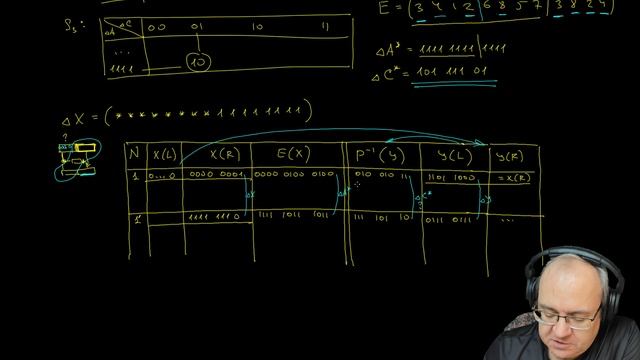 E = (3 4 1 2 | 6 8 5 7 | 3 8 2 4)
S₃: ΔA ΔC 00 01 10 11
...
1111 10
ΔA³ = 1111 1111 | 1111
ΔC* = 101 111 01
ΔX = (* * * * * * * * 1 1 1 1 1 1 1 1)
?
N X(L) X(R) E(X) P⁻¹(Y) Y(L) Y(R)
1 0...0 0000 0001 0000 0100 0100 010 010 11 1101 1000 = X(R)
ΔX ΔA ΔC* ΔY
?
1' 1111 1110 1111 1011 1011 111 101 10 0111 0111 ...